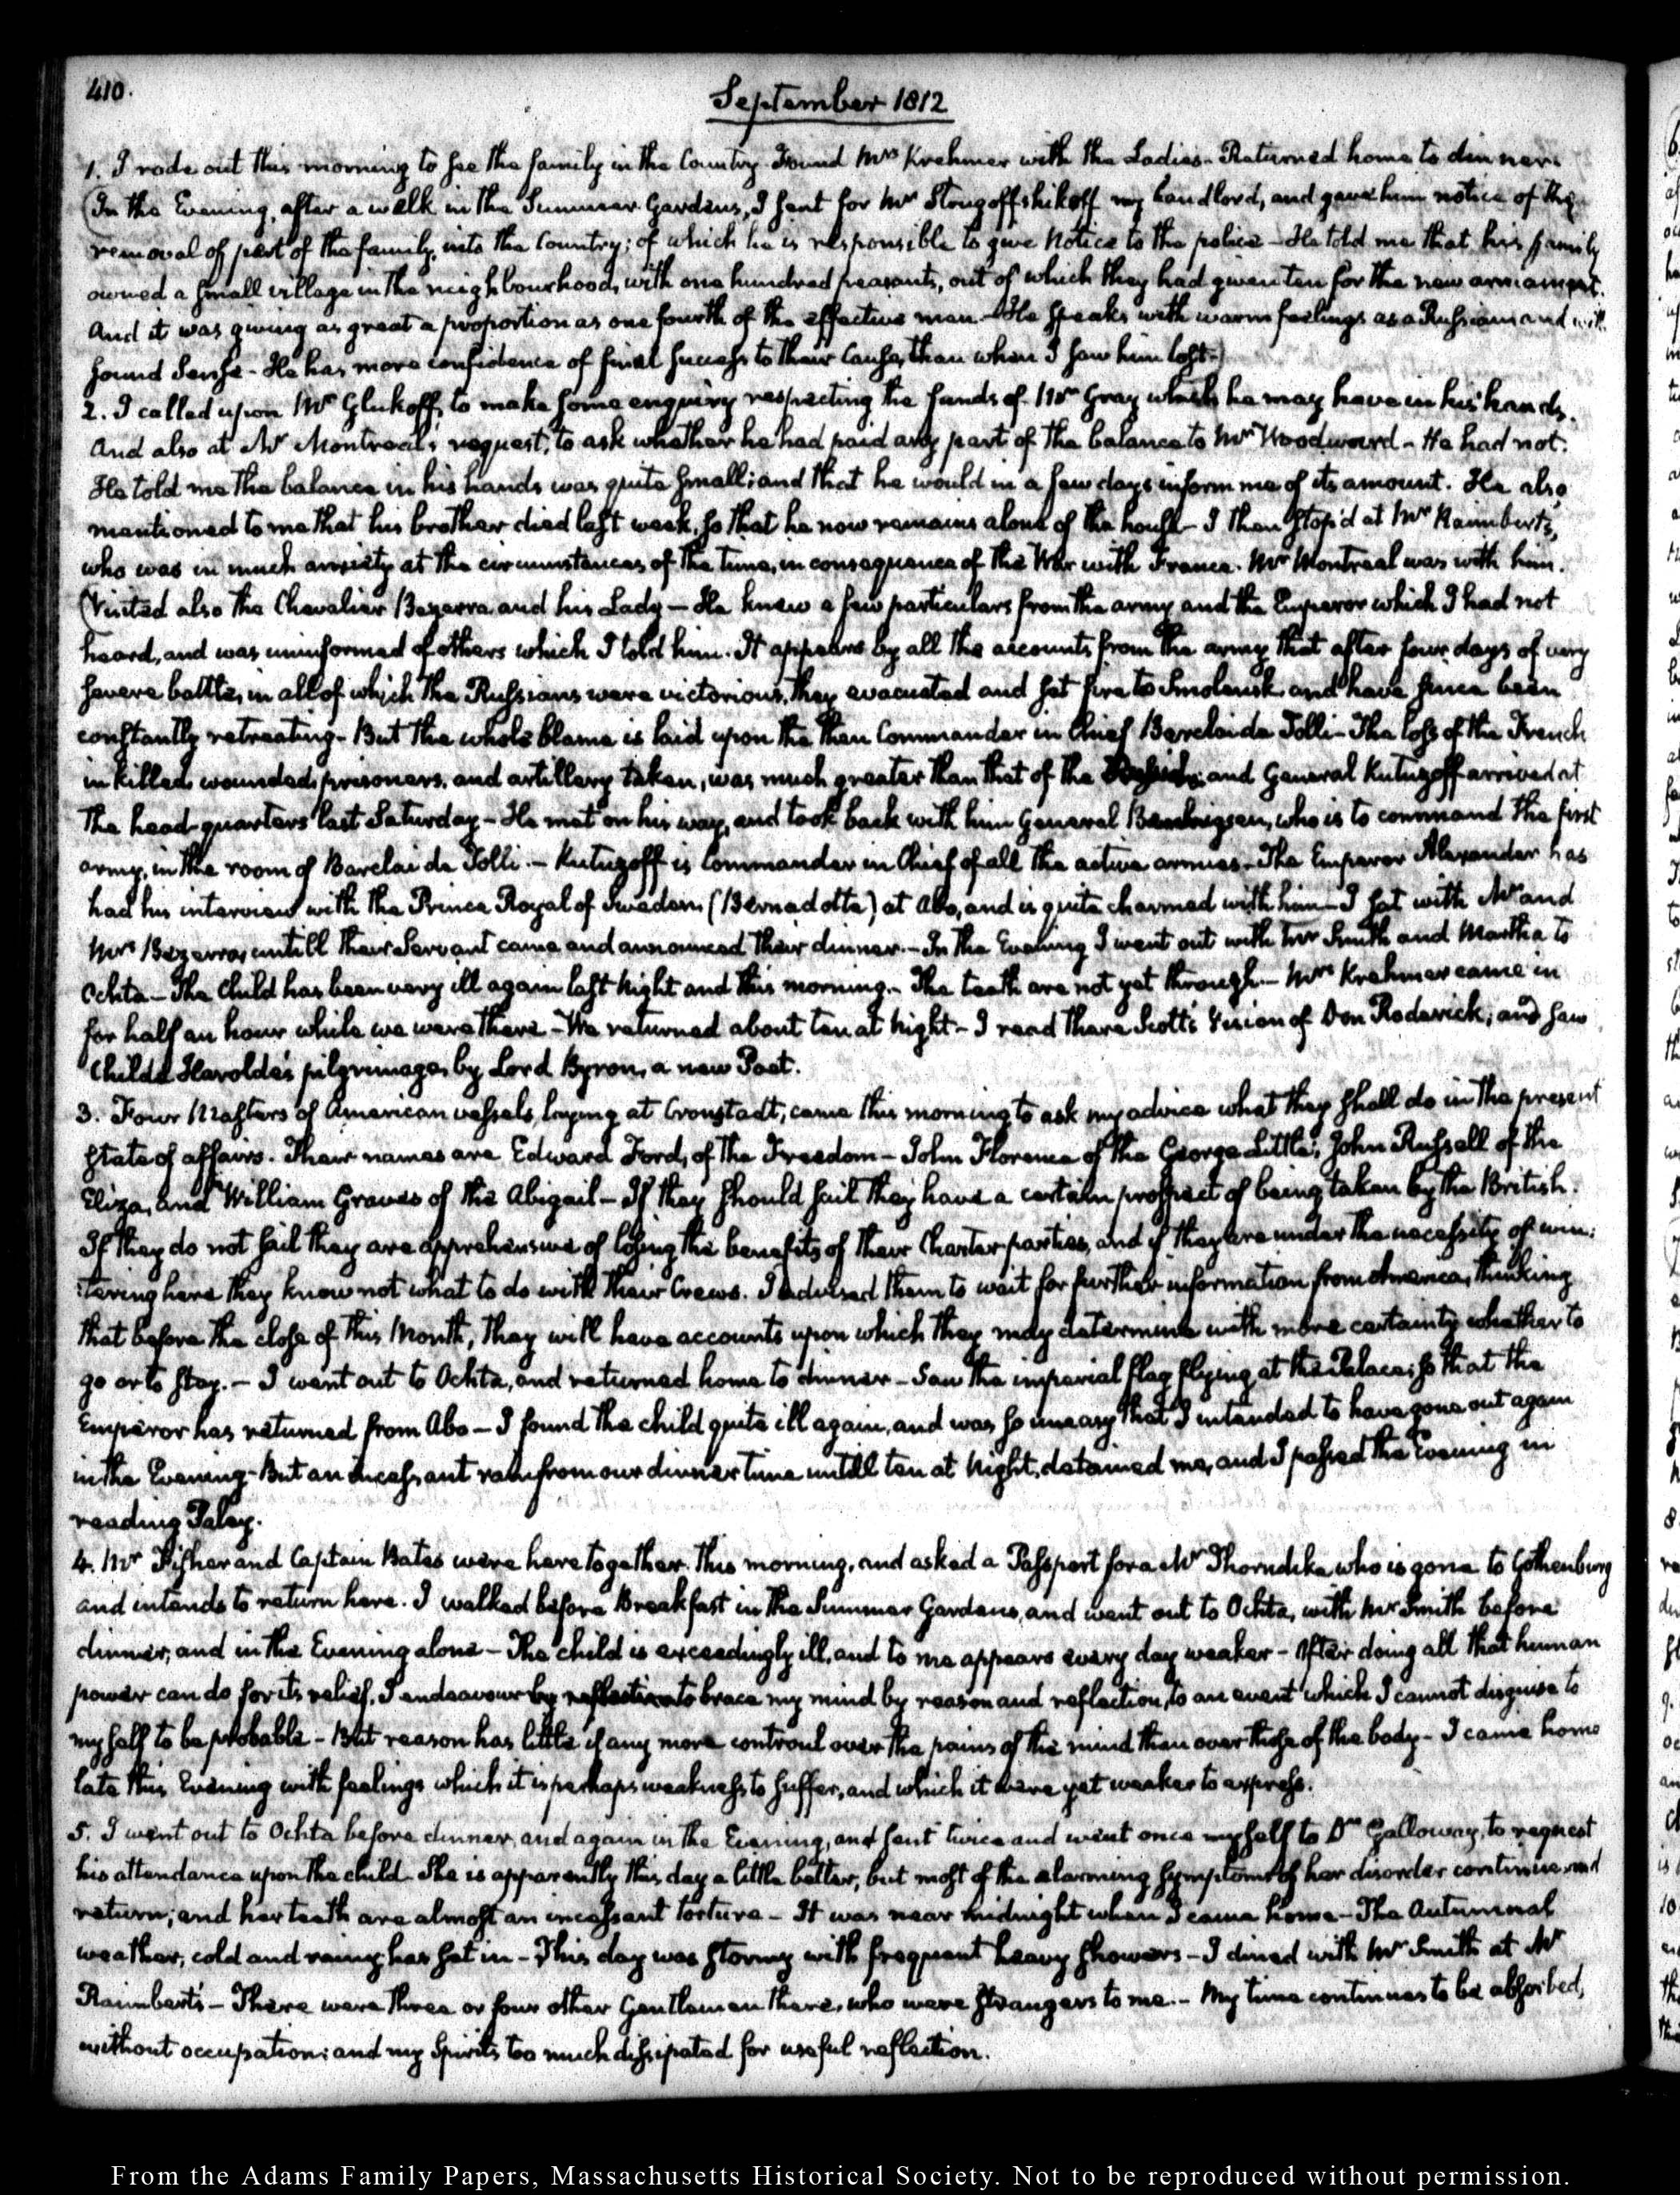 410.
September 1812
1. I rode out this morning to see the family in the Country. Found Mrs Krehmer with the Ladies. Returned home to dinner.
(In the Evening, after a walk in the Summer Gardens, I sent for Mr Strugoffshikoff my Landlord, and gave him notice of the
removal of part of the family, into the Country; of which he is responsible to give Notice to the police – He told me that his family
owned a small village in the neighbourhood, with one hundred peasants, out of which they had given ten for the new armament.
And it was giving as great a proportion as one fourth of the effective men – He speaks with warm feelings as a Russian and with
sound Sense – He has more confidence of final success to their Cause, than when I saw him last –)
2. I called upon Mr Glukoff, to make some enquiry respecting the funds of Mr Gray which he may have in his hands.
And also at Mr Montreal's request, to ask whether he had paid any part of the balance to Mr Woodward – He had not.
He told me the balance in his hands was quite small; and that he would in a few days inform me of its amount. He also
mentioned to me that his brother died last week, so that he now remains alone of the house – I then stop'd at Mr Raimbert's,
who was in much anxiety at the circumstances of the time, in consequence of the War with France. Mr Montreal was with him.
(Visited also the Chevalier Bezerra and his Lady – He knew a few particulars from the army and the Emperor which I had not
heard, and was uninformed of others which I told him. It appears by all the accounts from the army that after four days of very
severe battle, in all of which the Russians were victorious, they evacuated and set fire to Smolensk and have since been
constantly retreating – But the whole blame is laid upon the then Commander in Chief Barclai de Tolli – The loss of the French
in killed, wounded, prisoners, and artillery taken, was much greater than that of the and General Kutuzoff arrived at
the head-quarters last Saturday – He met on his way, and took back with him General Bennigsen, who is to command the first
army, in the room of Barclai de Tolli. – Kutuzoff is Commander in Chief of all the active armies – The Emperor Alexander has
had his interview with the Prince Royal of Sweden, (Bernadotte) at Abo, and is quite charmed with him – I sat with Mr and
Mrs Bezerra, untill their Servant came and announced their dinner. – In the Evening I went out with Mr Smith and Martha to
Ochta – The Child has been very ill again last Night and this morning. – The teeth are not yet through – Mrs Krehmer came in
for half an hour while we were there – We returned about ten at Night – I read there Scott's Vision of Don Roderick; and saw
Childe Harolde's pilgrimage, by Lord Byron, a new Poet.
3. Four Masters of American vessels, laying at Cronstadt, came this morning to ask my advice what they shall do in the present
State of affairs. Their names are Edward Ford, of the Freedom – John Florence of the George Little, John Russell of the
Eliza, and William Graves of the Abigail – If they should sail they have a certain prospect of being taken by the British.
If they do not sail they are apprehensive of losing the benefits of their Charter-parties, and if they are under the necessity of win:
:tering here they know not what to do with their Crews. I advised them to wait for further information from America, thinking
that before the close of this Month, they will have accounts upon which they may determine with more certainty whether to
go or to stay. – I went out to Ochta, and returned home to dinner – Saw the imperial flag flying at the Palace; so that the
Emperor has returned from Abo – I found the child quite ill again, and was so uneasy that I intended to have gone out again
in the Evening – But an incessant rain from our dinner time untill ten at Night, detained me, and I passed the Evening in
reading Paley.
4. Mr Fisher and Captain Bates were here together this morning, and asked a Passport for a Mr Thorndike who is gone to Gothenburg
and intends to return here. I walked before Breakfast in the Summer Gardens, and went out to Ochta, with Mr Smith before
dinner, and in the Evening alone – The child is exceedingly ill, and to me appears every day weaker – After doing all that human
power can do for its relief, I endeavour by reflection to brace my mind by reason and reflection, to an event which I cannot disguise to
myself to be probable – But reason has little if any more controul over the pains of the mind than over those of the body – I came home
late this Evening with feelings which it is perhaps weakness to suffer, and which it were yet weaker to express.
5. I went out to Ochta before dinner, and again in the Evening, and sent twice and went once myself to Dr Galloway, to request
his attendance upon the child. She is apparently this day a little better, but most of the alarming symptoms of her disorder continue and
return; and her teeth are almost an incessant torture – It was near midnight when I came home – The Autumnal
weather, cold and rainy has set in – This day was stormy with frequent heavy showers – I dined with Mr Smith at Mr
Raimbert's – There were three or four other Gentlemen there, who were strangers to me. – My time continues to be absorbed,
without occupation; and my Spirits too much dissipated for useful reflection.
From the Adams Family Papers, Massachusetts Historical Society. Not to be reproduced without permission.